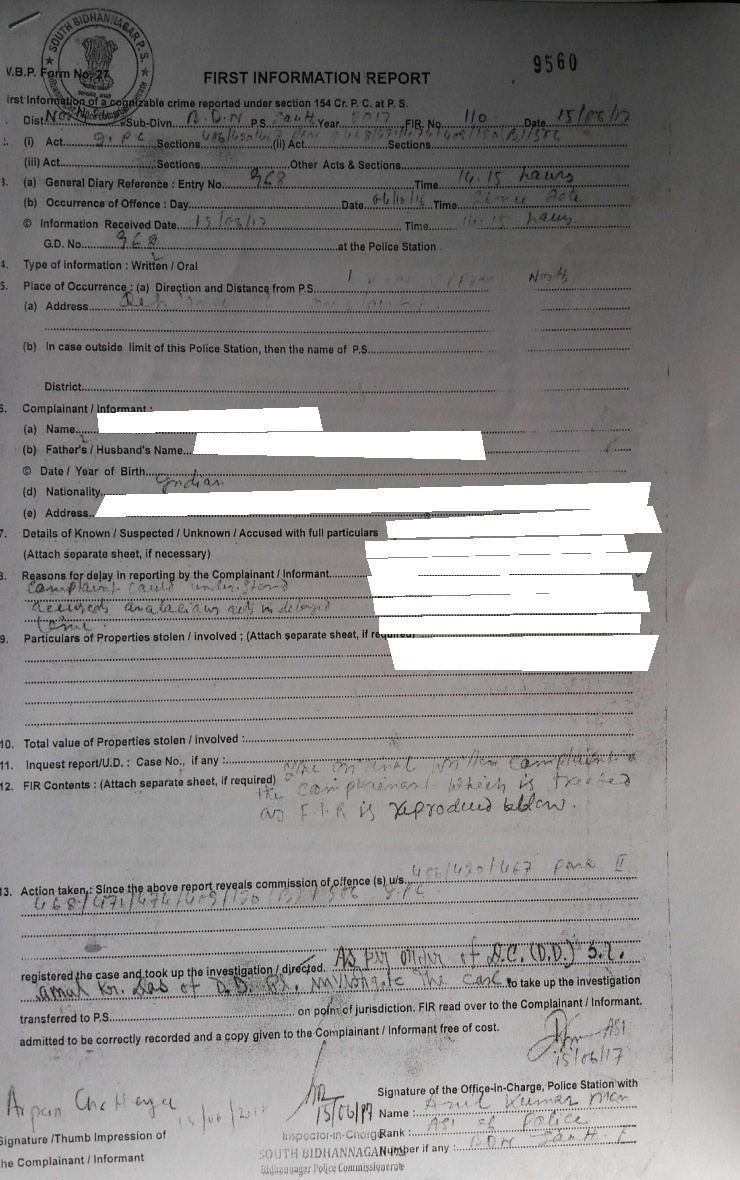 SOUTH BIDHANNAGAR P.S.
9560
V.B.P. Form No. 27
FIRST INFORMATION REPORT
irst Information of a cognizable crime reported under section 154 Cr. P. C. at P. S.
Dist. Sub-Divn. B.D.N P.S. South Year 2017 FIR. No. 110 Date 15/06/17
(i) Act I.PC Sections (ii) Act Sections
(iii) Act Sections Other Acts & Sections
(a) General Diary Reference : Entry No. 968 Time 14.15 hours
(b) Occurrence of Offence : Day Date Time
© Information Received Date 15/06/17 Time 14.15 hours
G.D. No. 968 at the Police Station
4. Type of information : Written / Oral
5. Place of Occurrence : (a) Direction and Distance from P.S. North
(a) Address
(b) In case outside limit of this Police Station, then the name of P.S.
District
6. Complainant / Informant :
(a) Name
(b) Father's / Husband's Name
© Date / Year of Birth
(d) Nationality Indian
(e) Address
7. Details of Known / Suspected / Unknown / Accused with full particulars
(Attach separate sheet, if necessary)
8. Reasons for delay in reporting by the Complainant / Informant
Complainant could understand
accused's in delayed
time.
9. Particulars of Properties stolen / involved ; (Attach separate sheet, if required)
10. Total value of Properties stolen / involved :
11. Inquest report/U.D. : Case No., if any :
12. FIR Contents : (Attach separate sheet, if required) The original written complaint of
the complainant which is treated
as F.I.R is reproduced below.
13. Action taken : Since the above report reveals commission of offence (s) u/s. 406/420/467 para II
468/471/474/409/120(B)/506 I.PC
registered the case and took up the investigation / directed. As per order of D.C. (D.D.) S.I.
amal Kr. Das of D.D. investigate the case to take up the investigation
transferred to P.S. on point of jurisdiction. FIR read over to the Complainant / Informant.
admitted to be correctly recorded and a copy given to the Complainant / Informant free of cost.
ASI
15/06/17
Arpan Chatterjee
15/06/17
Signature of the Office-in-Charge, Police Station with
Name : Kumar
Inspector-in-Charge Rank : ASI of Police
Signature /Thumb Impression of
SOUTH BIDHANNAGAR Number if any : BDN South P.S
he Complainant / Informant
Bidhannagar Police Commissionerate